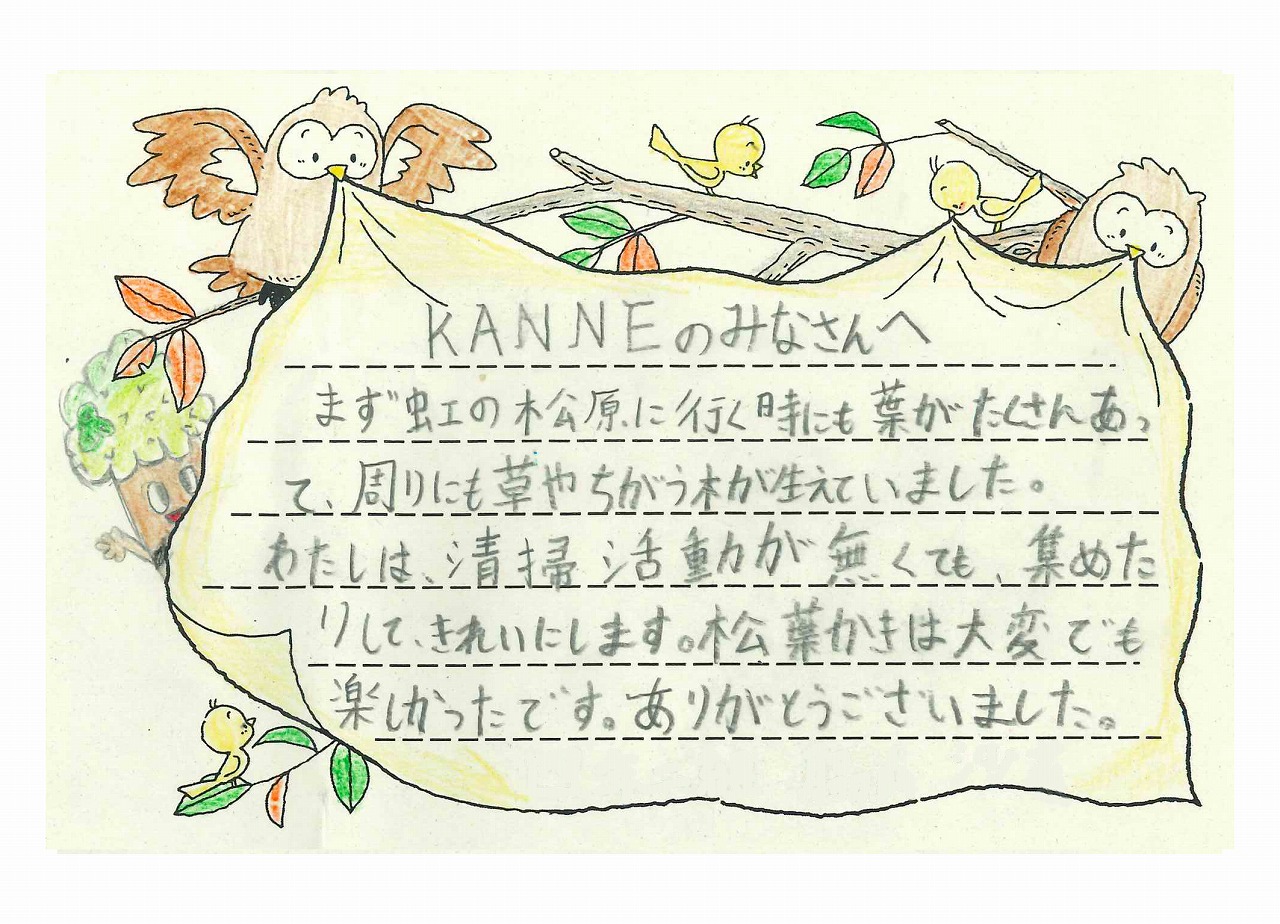 KANNEのみなさんへ
まず虹の松原に行く時にも葉がたくさんあっ
て、周りにも草やちがう木が生えていました。
わたしは、清掃活動が無くても、集めた
りして、きれいにします。松葉かきは大変でも
楽しかったです。ありがとうございました。